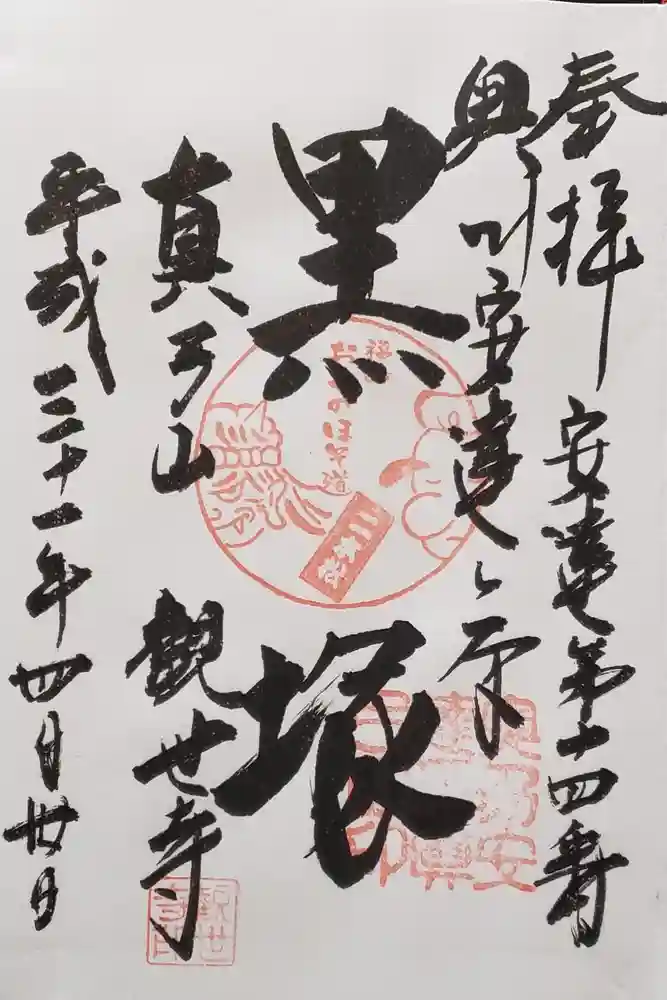 奉拝 安達第十四番
奥州安達ヶ原
黒塚
真弓山 観世寺
平成三十一年四月廿日
二本松
観世寺印